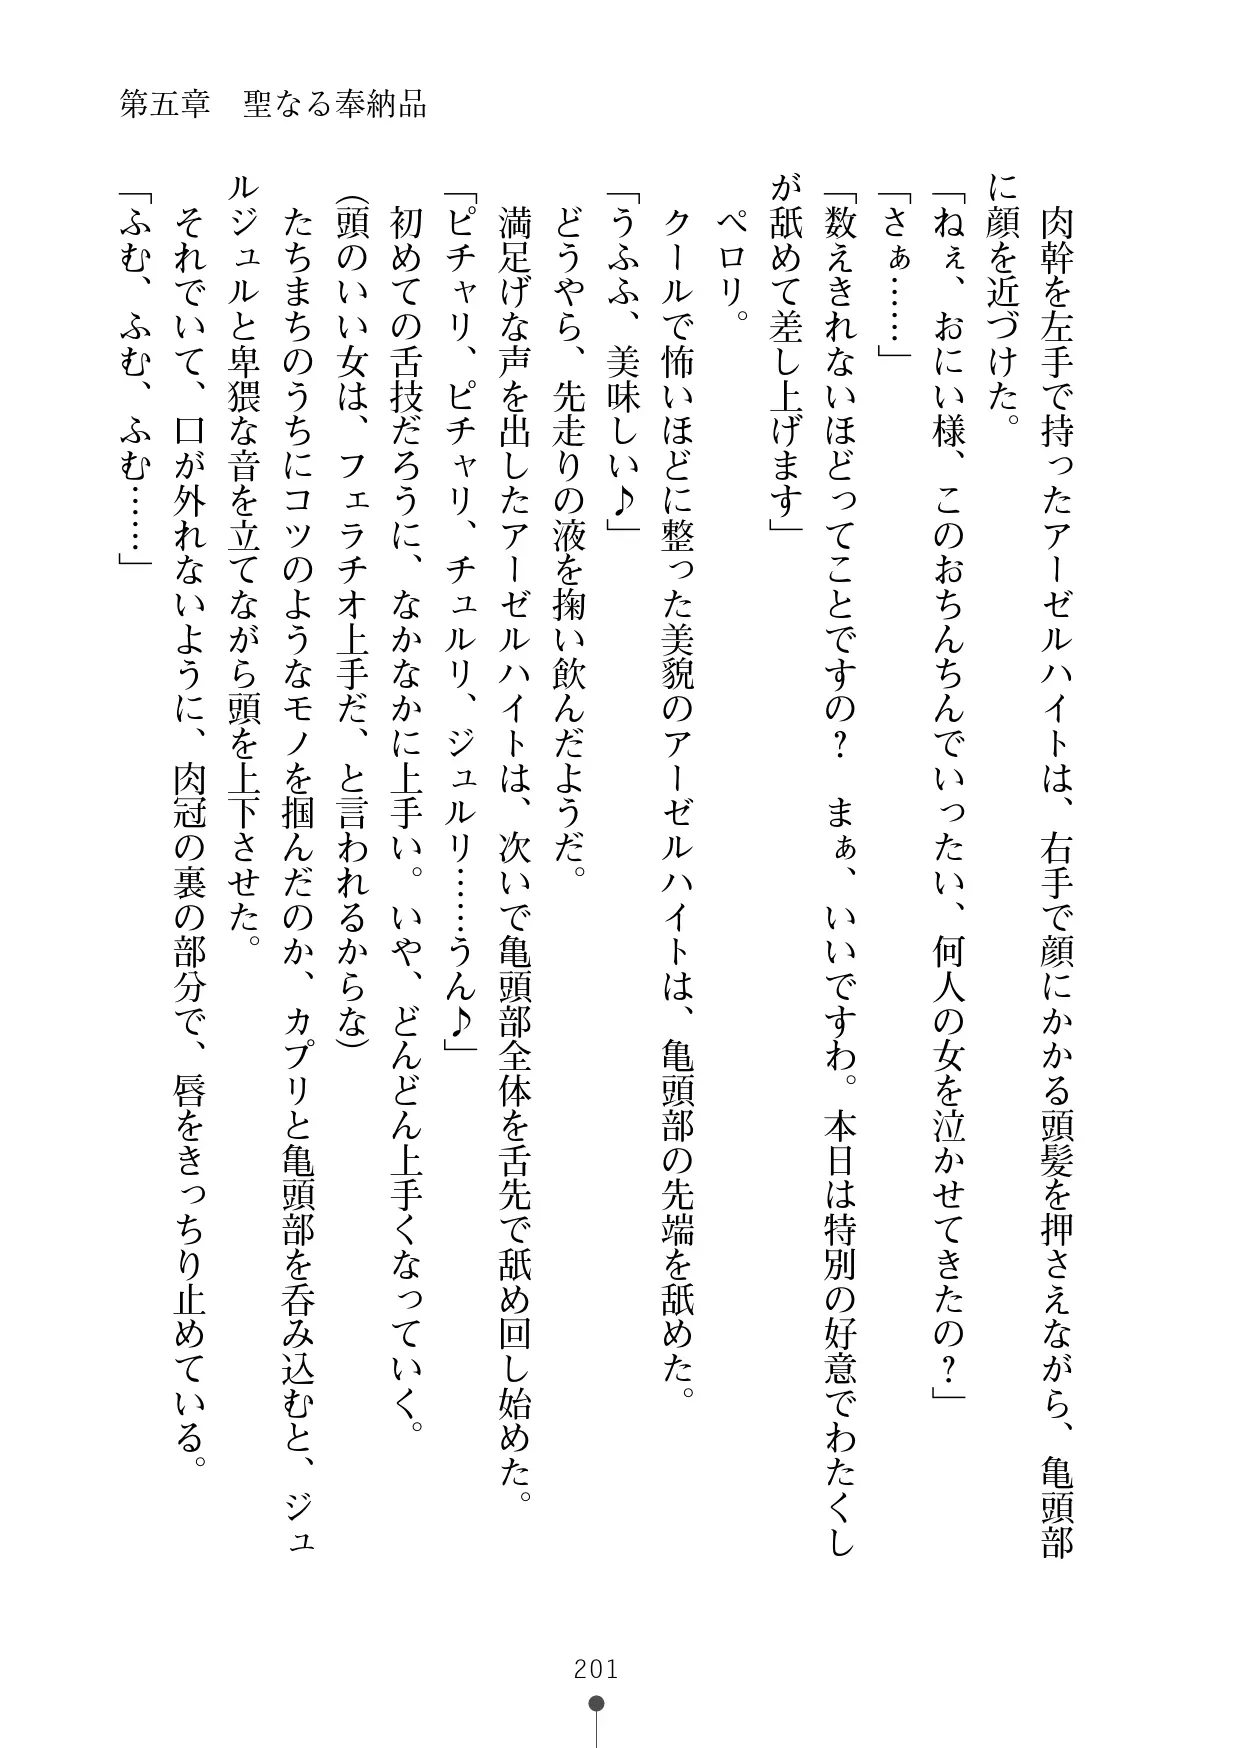 第五章　聖なる奉納品
　肉幹を左手で持ったアーゼルハイトは、右手で顔にかかる頭髪を押さえながら、亀頭部
に顔を近づけた。
「ねぇ、おにい様、このおちんちんでいったい、何人の女を泣かせてきたの？」
「さぁ……」
「数えきれないほどってことですの？　まぁ、いいですわ。本日は特別の好意でわたくし
が舐めて差し上げます」
　ペロリ。
　クールで怖いほどに整った美貌のアーゼルハイトは、亀頭部の先端を舐めた。
「うふふ、美味しい♪」
　どうやら、先走りの液を掬い飲んだようだ。
　満足げな声を出したアーゼルハイトは、次いで亀頭部全体を舌先で舐め回し始めた。
「ピチャリ、ピチャリ、チュルリ、ジュルリ……うん♪」
　初めての舌技だろうに、なかなかに上手い。いや、どんどん上手くなっていく。
（頭のいい女は、フェラチオ上手だ、と言われるからな）
　たちまちのうちにコツのようなモノを掴んだのか、カプリと亀頭部を呑み込むと、ジュ
ルジュルと卑猥な音を立てながら頭を上下させた。
　それでいて、口が外れないように、肉冠の裏の部分で、唇をきっちり止めている。
「ふむ、ふむ、ふむ……」
201